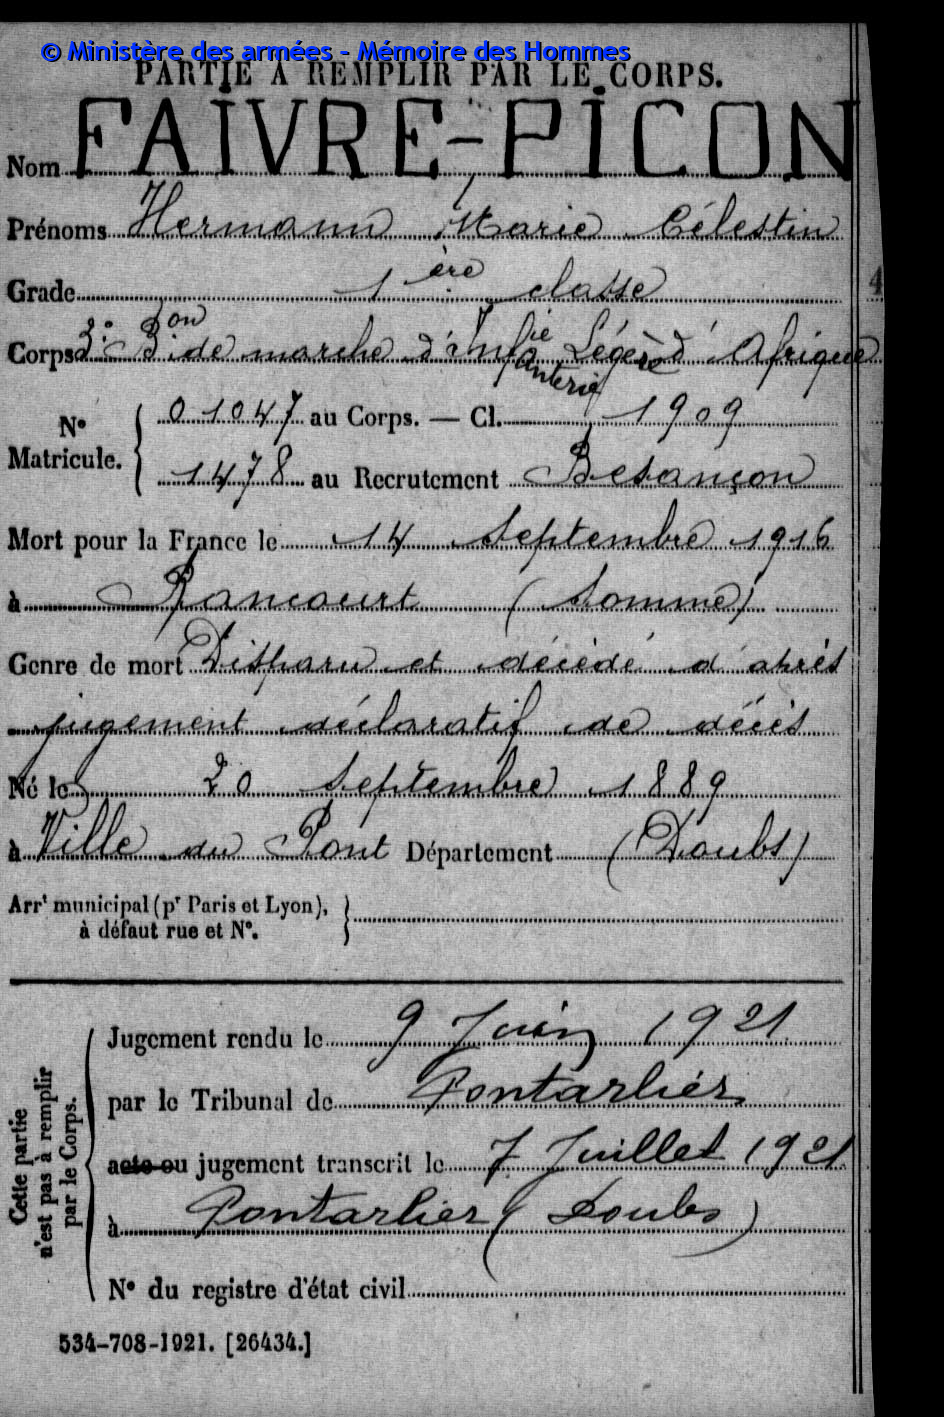 © Ministère des armées - Mémoire des Hommes
PARTIE À REMPLIR PAR LE CORPS.
Nom FAIVRE-PICON
Prénoms Hermann Marie Célestin
Grade 1ère classe
4
Corps 3e Bon de marche d'Infie Légère d'Afrique
anterie
Nº Matricule. 01047 au Corps. — Cl. 1909
1478 au Recrutement Besançon
Mort pour la France le 14 Septembre 1916
à Rancourt (Somme)
Genre de mort Disparu et décédé d'après
jugement déclaratif de décès
Né le 20 Septembre 1889
à Ville du Pont Département (Doubs)
Arrt municipal (pr Paris et Lyon),
à défaut rue et Nº.
Cette partie n'est pas à remplir par le Corps.
Jugement rendu le 9 Juin 1921
par le Tribunal de Pontarlier
acte ou jugement transcrit le 7 Juillet 1921
à Pontarlier (Doubs)
Nº du registre d'état civil
534-708-1921. [26434.]